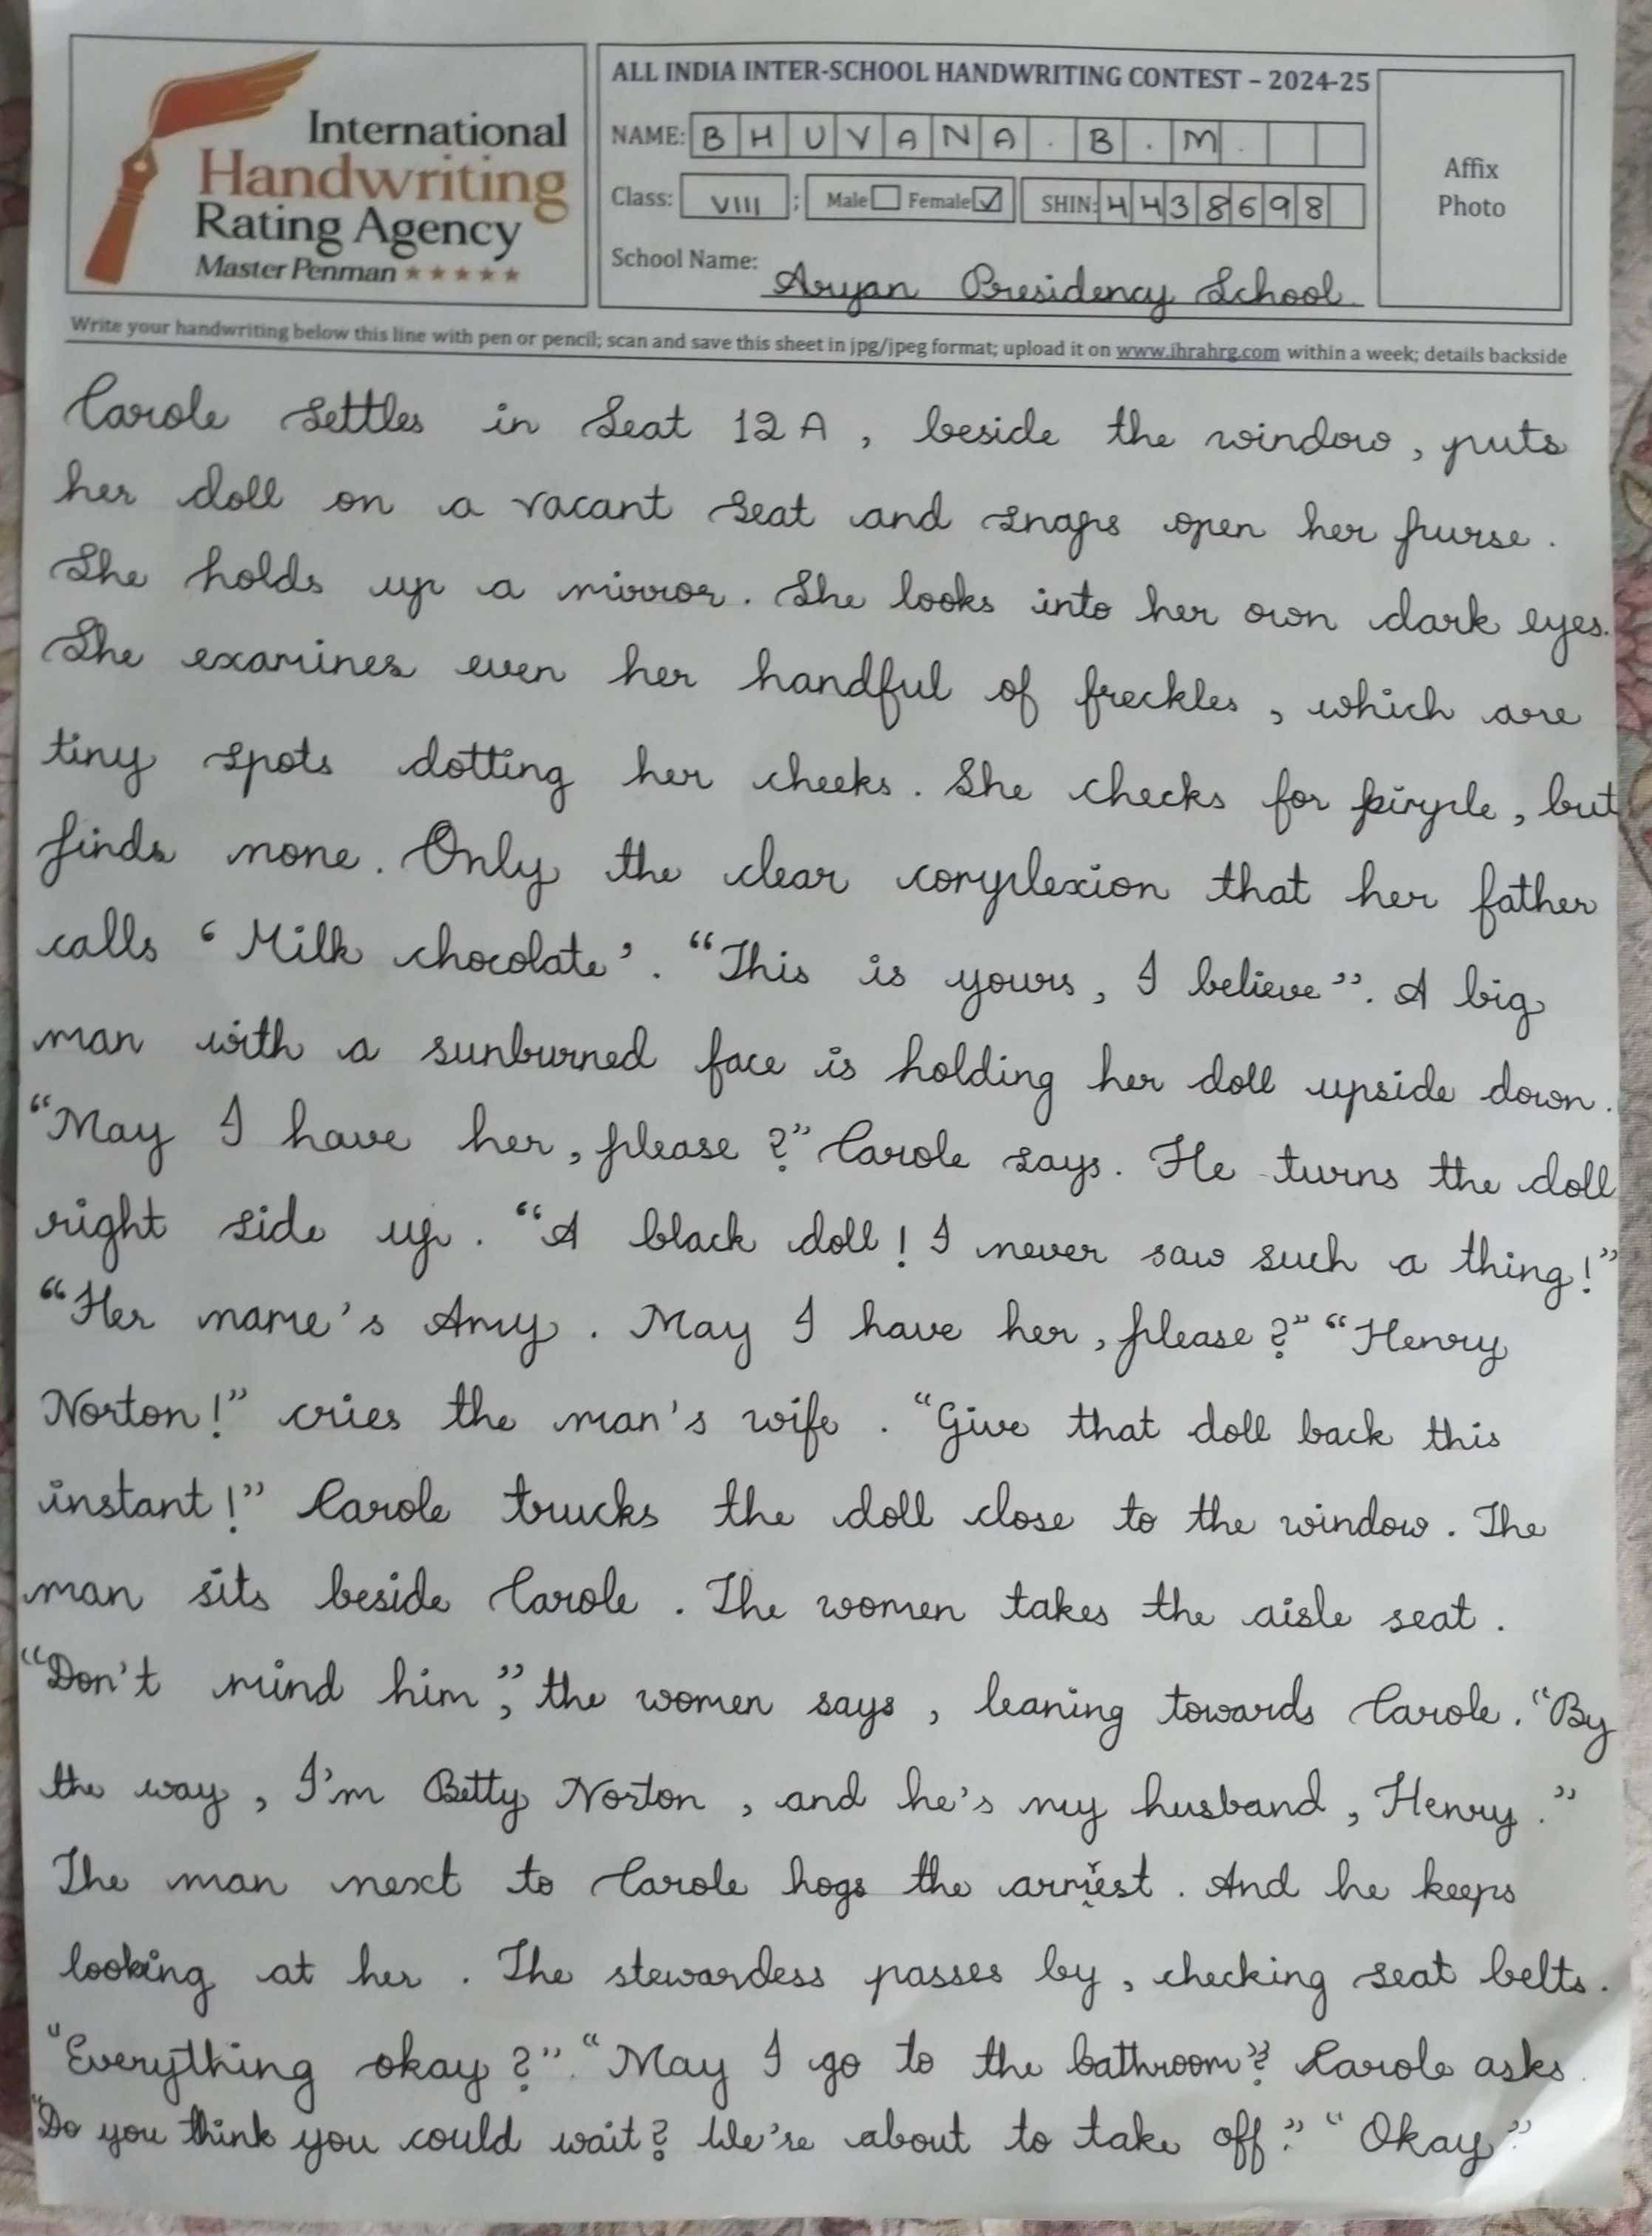 International
Handwriting
Rating Agency
Master Penman ★★★★★
ALL INDIA INTER-SCHOOL HANDWRITING CONTEST – 2024-25
NAME: BHUVANA. B. M.
Class: VIII ; Male Female ✓ SHIN: 4438698
School Name: Aryan Presidency School
Affix
Photo
Write your handwriting below this line with pen or pencil; scan and save this sheet in jpg/jpeg format; upload it on www.ihrahrg.com within a week; details backside
Carole settles in Seat 12A, beside the window, puts
her doll on a vacant seat and snaps open her purse.
She holds up a mirror. She looks into her own dark eyes.
She examines even her handful of freckles, which are
tiny spots dotting her cheeks. She checks for pimple, but
finds none. Only the clear complexion that her father
calls ‘Milk chocolate’. “This is yours, I believe”. A big
man with a sunburned face is holding her doll upside down.
“May I have her, please?” Carole says. He turns the doll
right side up. “A black doll! I never saw such a thing!”
“Her name's Amy. May I have her, please?” “Henry
Norton!” cries the man's wife. “Give that doll back this
instant!” Carole trucks the doll close to the window. The
man sits beside Carole. The women takes the aisle seat.
“Don't mind him”, the women says, leaning towards Carole. “By
the way, I'm Betty Norton, and he's my husband, Henry.”
The man next to Carole hogs the armrest. And he keeps
looking at her. The stewardess passes by, checking seat belts.
“Everything okay?” “May I go to the bathroom”? Carole asks.
“Do you think you could wait? We're about to take off.” “Okay”